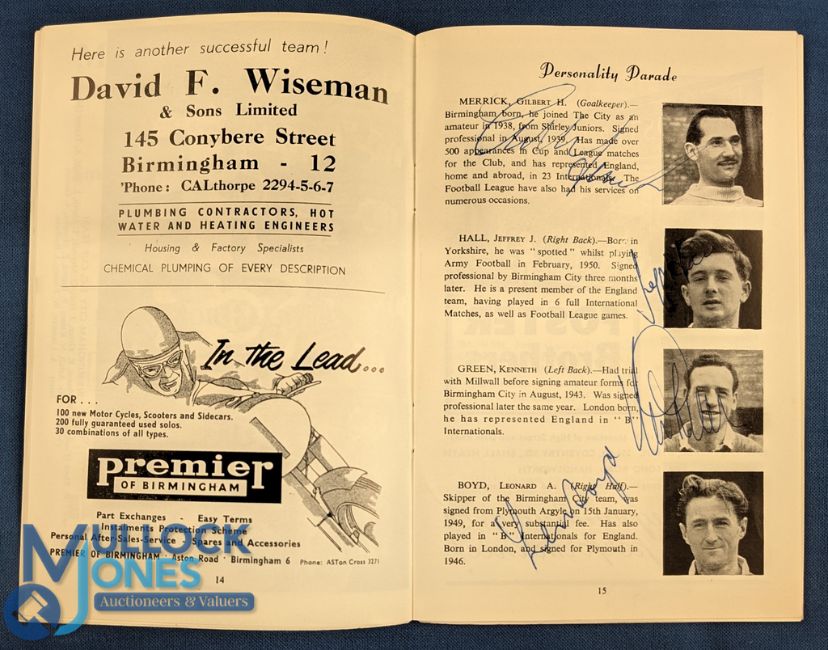 Here is another successful team!
David F. Wiseman
& Sons Limited
145 Conybere Street
Birmingham - 12
'Phone: CALthorpe 2294-5-6-7
PLUMBING CONTRACTORS, HOT
WATER AND HEATING ENGINEERS
Housing & Factory Specialists
CHEMICAL PLUMPING OF EVERY DESCRIPTION
In the Lead...
FOR...
100 new Motor Cycles, Scooters and Sidecars.
200 fully guaranteed used solos.
30 combinations of all types.
premier
OF BIRMINGHAM
Part Exchanges Easy Terms
Instalments Protection Scheme
Personal After-Sales-Service - Spares and Accessories
PREMIER OF BIRMINGHAM · Aston Road · Birmingham 6 Phone: ASTon Cross 3271
14
MULLOCK
JONES
Auctioneers & Valuers
Personality Parade
MERRICK, GILBERT H. (Goalkeeper).—
Birmingham born, he joined The City as an
amateur in 1938, from Shirley Juniors. Signed
professional in August, 1939. Has made over
500 appearances in Cup and League matches
for the Club, and has represented England,
home and abroad, in 23 Internationals. The
Football League have also had his services on
numerous occasions.
HALL, JEFFREY J. (Right Back).—Born in
Yorkshire, he was "spotted" whilst playing
Army Football in February, 1950. Signed
professional by Birmingham City three months
later. He is a present member of the England
team, having played in 6 full International
Matches, as well as Football League games.
GREEN, KENNETH (Left Back).—Had trial
with Millwall before signing amateur forms for
Birmingham City in August, 1943. Was signed
professional later the same year. London born,
he has represented England in "B"
Internationals.
BOYD, LEONARD A. (Right Half).—
Skipper of the Birmingham City team, was
signed from Plymouth Argyle on 15th January,
1949, for a very substantial fee. Has also
played in "B" Internationals for England.
Born in London, and signed for Plymouth in
1946.
15